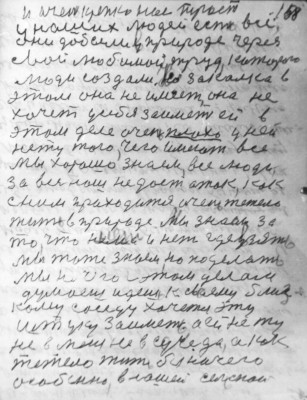 и очен крепко нас просят 68
у наших людей есть всё,
они добели в природе через
свой любимой труд, которого
люди создали, а закалка в
этом она не имеет, она не
хочет у себя заиметь ей в
этом деле очен плохо у ней
нету того, чего имеют все
мы хорошо знаем, все люди
за всё наш недостаток, как
с ним приходится очен тежело
жить в природе мы знаем за
то, что и нет где взять
мы тоже знаем но поделать
мы ничего с этом делам
думаем идем к своему близ-
кому соседу хочется эту
штуку заиметь а её нету
не в мене не в суседа, а как
тежело жить без ничего
особенно, в нашей сельской